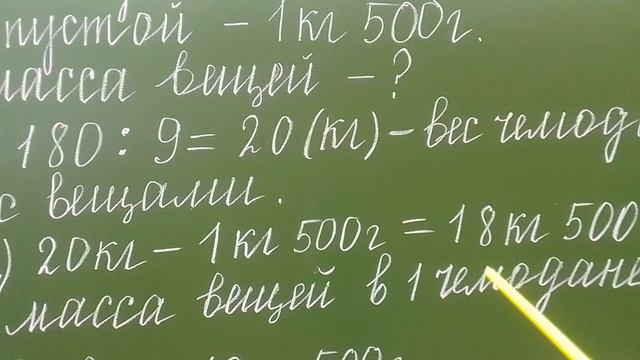 пустой – 1кг 500г.
масса вещей – ?
180 : 9 = 20 (кг) – вес чемод
с вещами.
) 20кг – 1кг 500г = 18кг 500
масса вещей в 1 чемодане
500г